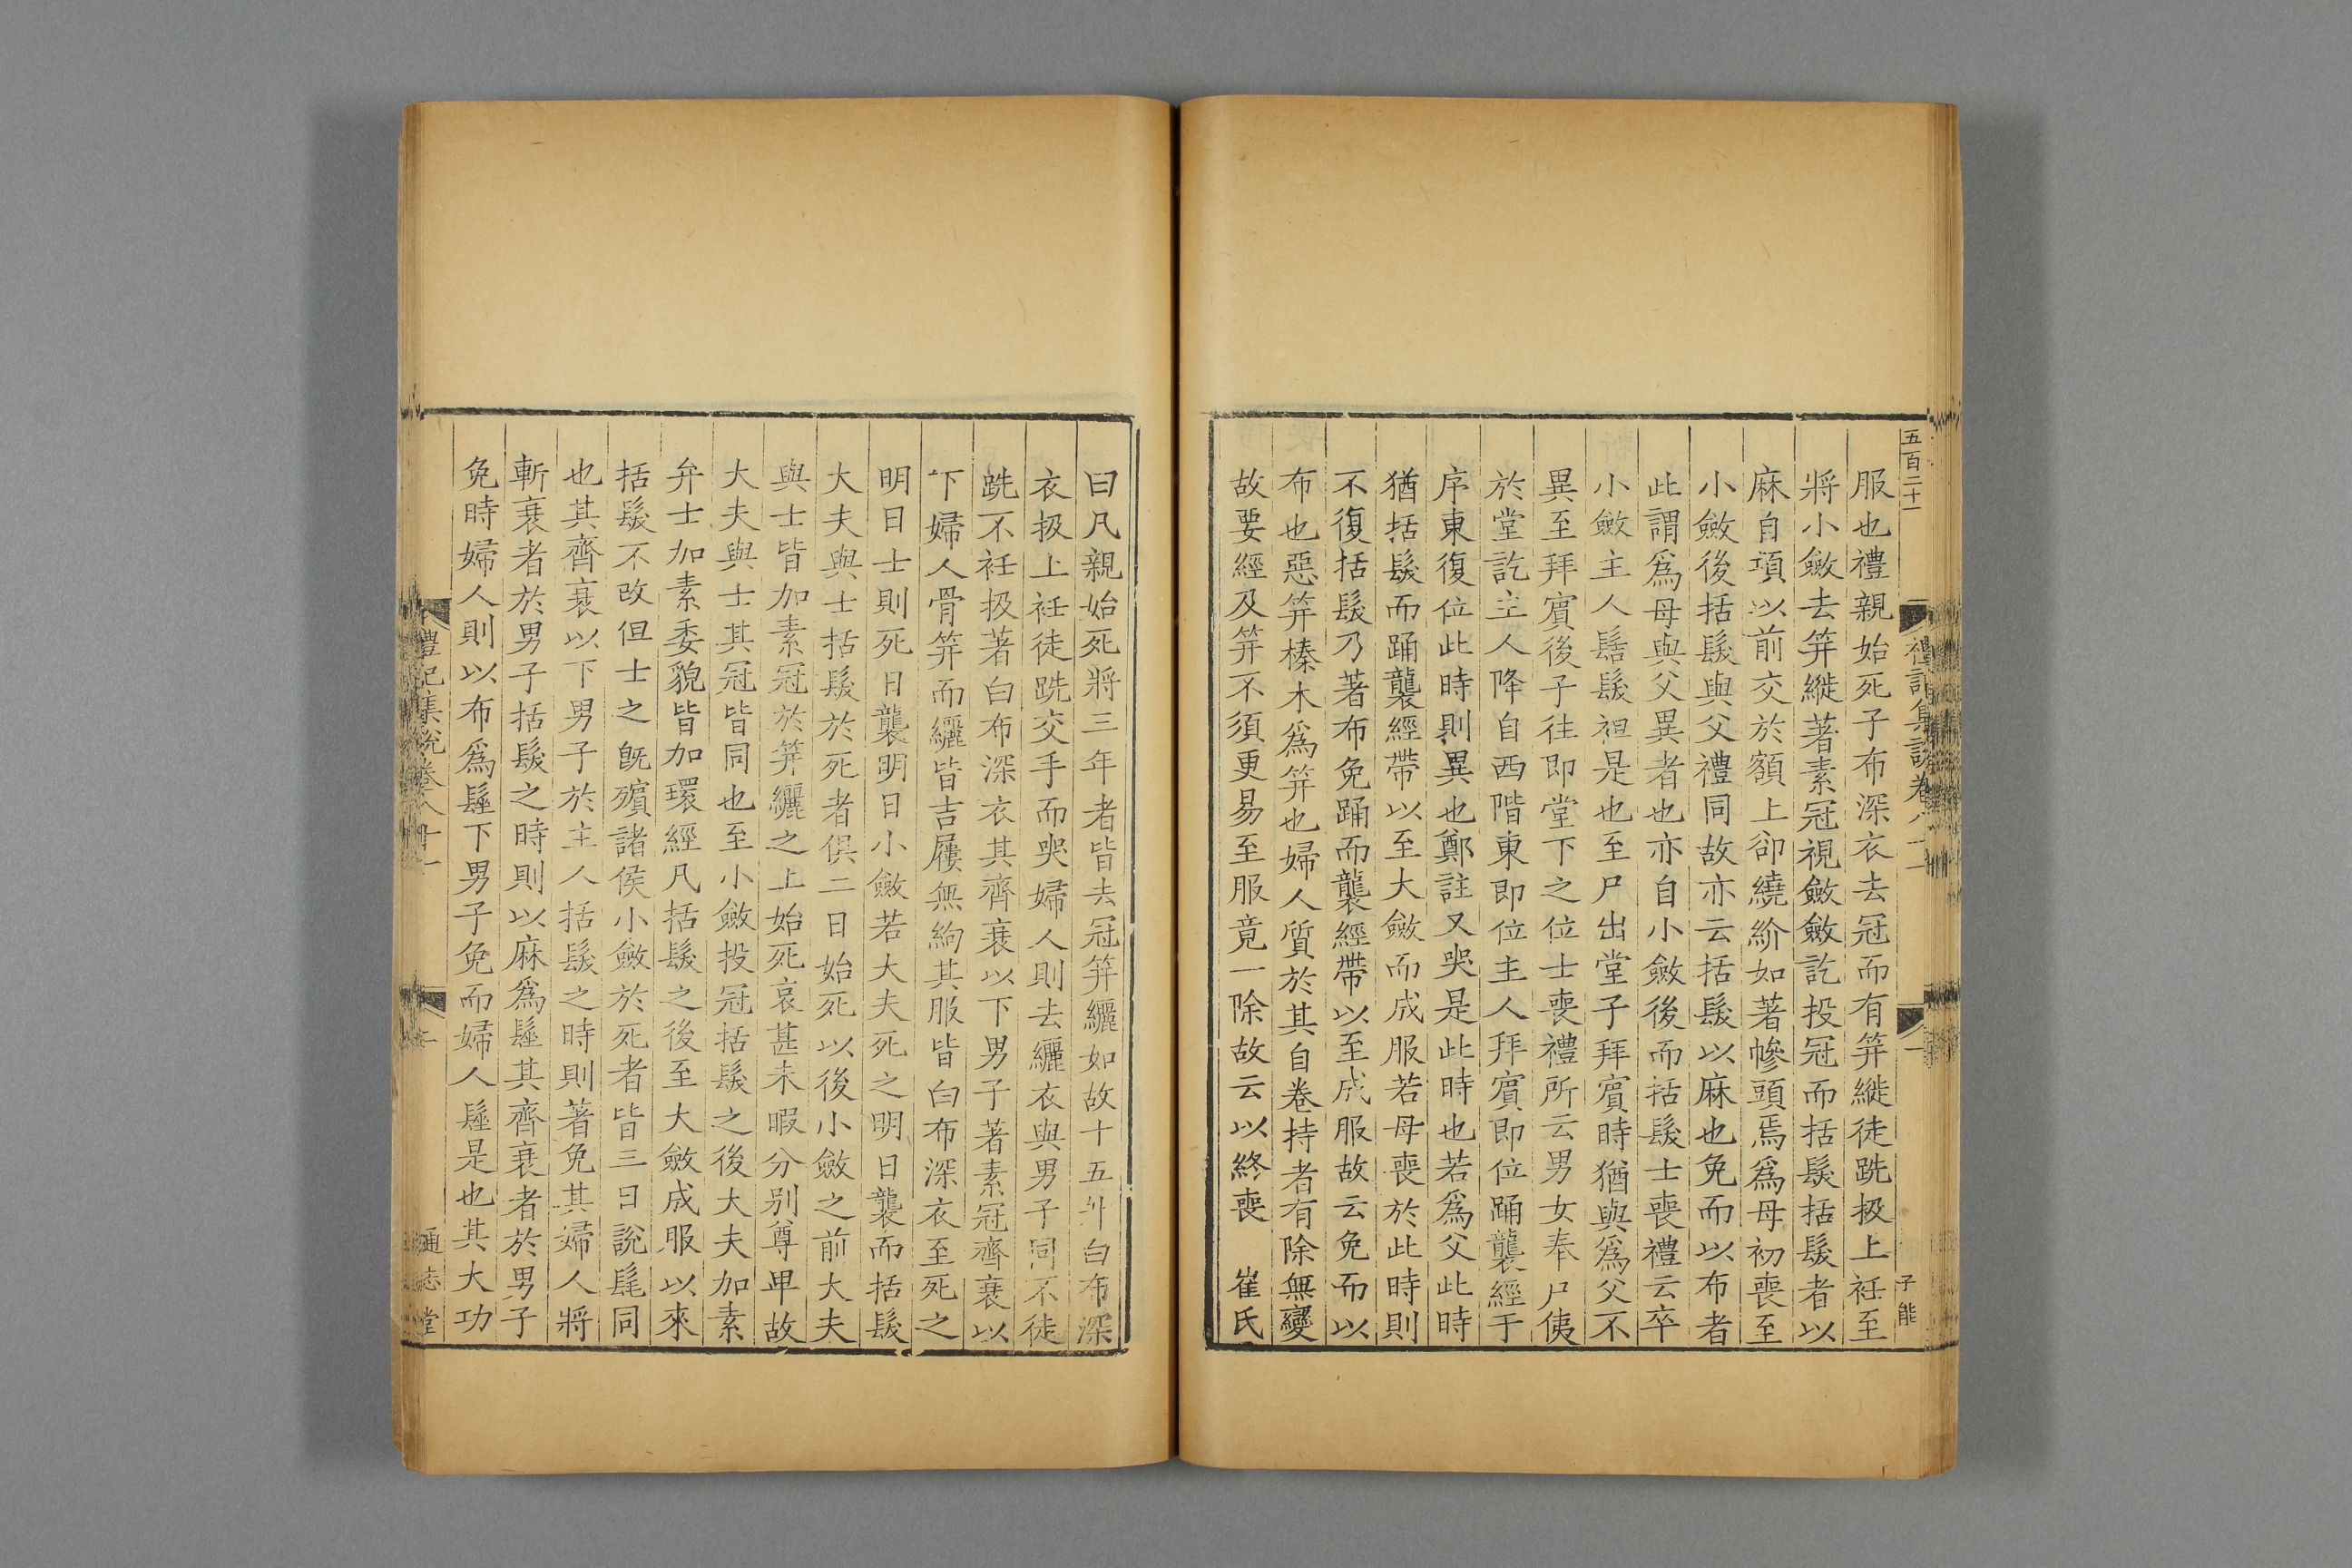 五百二十一
禮記集說卷八十一
一
子能
服也禮親始死子布深衣去冠而有笄縰徒跣扱上衽至
將小斂去笄縰著素冠視斂斂訖投冠而括髮括髮者以
麻自項以前交於額上卻繞紒如著幓頭焉爲母初喪至
小斂後括髮與父禮同故亦云括髮以麻也免而以布者
此謂爲母與父異者也亦自小斂後而括髮士喪禮云卒
小斂主人髺髮袒是也至尸出堂子拜賓時猶與爲父不
異至拜賓後子往即堂下之位士喪禮所云男女奉尸侇
於堂訖主人降自西階東即位主人拜賓即位踊襲絰于
序東復位此時則異也鄭註又哭是此時也若爲父此時
猶括髮而踊襲絰帶以至大斂而成服若母喪於此時則
不復括髮乃著布免踊而襲絰帶以至成服故云免而以
布也惡笄榛木爲笄也婦人質於其自卷持者有除無變
故要絰及笄不須更易至服竟一除故云以終喪　崔氏
曰凡親始死將三年者皆去冠笄纚如故十五升白布深
衣扱上衽徒跣交手而哭婦人則去纚衣與男子同不徒
跣不衽扱著白布深衣其齊衰以下男子著素冠齊衰以
下婦人骨笄而纚皆吉屨無絇其服皆白布深衣至死之
明日士則死日襲明日小斂若大夫死之明日襲而括髮
大夫與士括髮於死者俱二日始死以後小斂之前大夫
與士皆加素冠於笄纚之上始死哀甚未暇分别尊卑故
大夫與士其冠皆同也至小斂投冠括髮之後大夫加素
弁士加素委貌皆加環絰凡括髮之後至大斂成服以來
括髮不改但士之旣殯諸侯小斂於死者皆三日說髦同
也其齊衰以下男子於主人括髮之時則著免其婦人將
斬衰者於男子括髮之時則以麻爲髽其齊衰者於男子
免時婦人則以布爲髽下男子免而婦人髽是也其大功
禮記集說卷八十一
通志堂